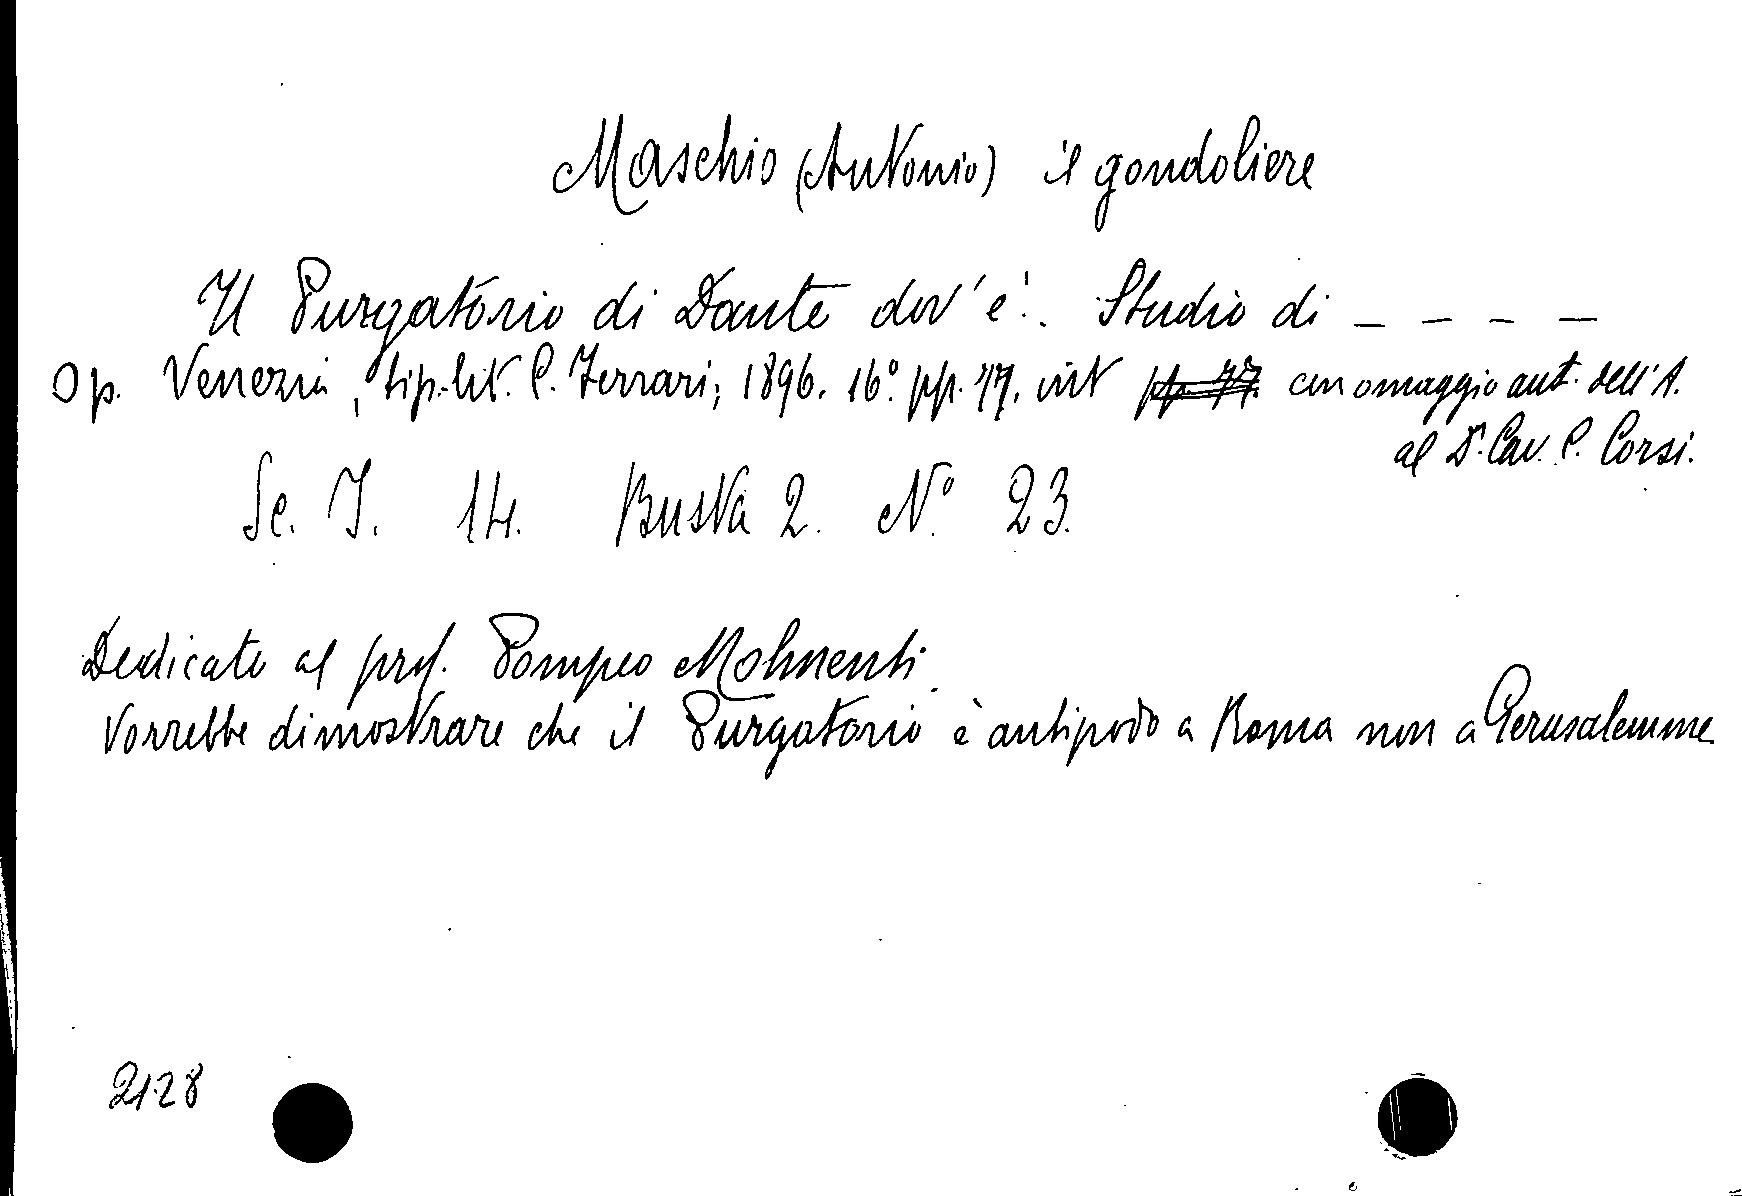 Maschio (Antonio) il gondoliere
Il Purgatorio di Dante dov'è. Studio di _ _ _ _
Op. Venezia, tip. lit. C. Ferrari, 1896. 16° pp. 77. int pp. 77. con omaggio aut. dell'A.
al Dr. Cav. C. Corsi.
Sc. I. 14. Busta 2. N° 23.
Dedicato al prof. Pompeo Molmenti.
Vorrebbe dimostrare che il Purgatorio è antipodo a Roma non a Gerusalemme
2128